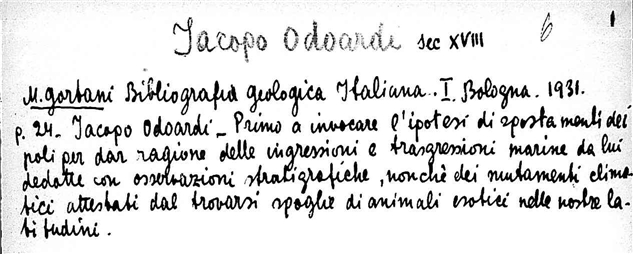 Jacopo Odoardi sec XVIII 6 1
M. Gortani Bibliografia geologica Italiana. I. Bologna. 1931.
p. 24. Jacopo Odoardi - Primo a invocare l'ipotesi di spostamenti dei
poli per dar ragione delle ingressioni e trasgressioni marine da lui
dedotte con osservazioni stratigrafiche, nonchè dei mutamenti clima-
tici attestati dal trovarsi spoglie di animali esotici nelle nostre la-
titudini.